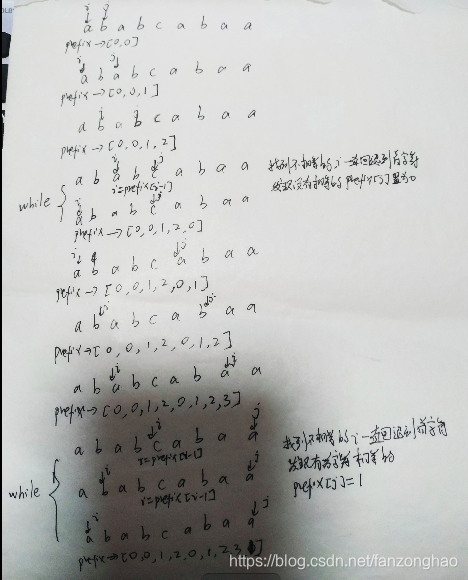 i j
a b a b c a b a a
prefix → [0,0]
i j
a b a b c a b a a
prefix → [0,0,1]
i j
a b a b c a b a a
prefix → [0,0,1,2]
i j
a b a b c a b a a
i=prefix[i-1]
while {
找到不相等的 i 一直回退到首字符
发现没有相等的 prefix[j] 置为0
i j
a b a b c a b a a
prefix → [0,0,1,2,0]
i j
a b a b c a b a a
prefix → [0,0,1,2,0,1]
i j
a b a b c a b a a
prefix → [0,0,1,2,0,1,2]
i j
a b a b c a b a a
prefix → [0,0,1,2,0,1,2,3]
i j
a b a b c a b a a
i=prefix[i-1]
找到不相等的 i 一直回退到首字符
while {
i j
a b a b c a b a a
i=prefix[i-1]
发现有首字符相等的
prefix[j]=1
i j
a b a b c a b a a
prefix → [0,0,1,2,0,1,2,3
https://blog.csdn.net/fanzonghao